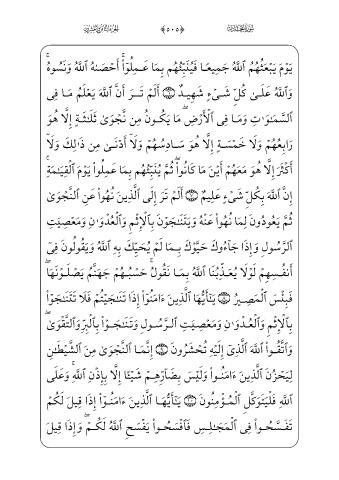 سورة المجادلة ﴿٥٠٥﴾ الجزء الثامن والعشرون
يَوْمَ يَبْعَثُهُمُ ٱللَّهُ جَمِيعًا فَيُنَبِّئُهُم بِمَا عَمِلُوٓا۟ۚ أَحْصَىٰهُ ٱللَّهُ وَنَسُوهُۚ
وَٱللَّهُ عَلَىٰ كُلِّ شَىْءٍ شَهِيدٌ ۝ أَلَمْ تَرَ أَنَّ ٱللَّهَ يَعْلَمُ مَا فِى
ٱلسَّمَٰوَٰتِ وَمَا فِى ٱلْأَرْضِۖ مَا يَكُونُ مِن نَّجْوَىٰ ثَلَٰثَةٍ إِلَّا هُوَ
رَابِعُهُمْ وَلَا خَمْسَةٍ إِلَّا هُوَ سَادِسُهُمْ وَلَآ أَدْنَىٰ مِن ذَٰلِكَ وَلَآ
أَكْثَرَ إِلَّا هُوَ مَعَهُمْ أَيْنَ مَا كَانُوا۟ۖ ثُمَّ يُنَبِّئُهُم بِمَا عَمِلُوا۟ يَوْمَ ٱلْقِيَٰمَةِۚ
إِنَّ ٱللَّهَ بِكُلِّ شَىْءٍ عَلِيمٌ ۝ أَلَمْ تَرَ إِلَى ٱلَّذِينَ نُهُوا۟ عَنِ ٱلنَّجْوَىٰ
ثُمَّ يَعُودُونَ لِمَا نُهُوا۟ عَنْهُ وَيَتَنَٰجَوْنَ بِٱلْإِثْمِ وَٱلْعُدْوَٰنِ وَمَعْصِيَتِ
ٱلرَّسُولِ وَإِذَا جَآءُوكَ حَيَّوْكَ بِمَا لَمْ يُحَيِّكَ بِهِ ٱللَّهُ وَيَقُولُونَ فِىٓ
أَنفُسِهِمْ لَوْلَا يُعَذِّبُنَا ٱللَّهُ بِمَا نَقُولُۚ حَسْبُهُمْ جَهَنَّمُ يَصْلَوْنَهَاۖ
فَبِئْسَ ٱلْمَصِيرُ ۝ يَٰٓأَيُّهَا ٱلَّذِينَ ءَامَنُوٓا۟ إِذَا تَنَٰجَيْتُمْ فَلَا تَتَنَٰجَوْا۟
بِٱلْإِثْمِ وَٱلْعُدْوَٰنِ وَمَعْصِيَتِ ٱلرَّسُولِ وَتَنَٰجَوْا۟ بِٱلْبِرِّ وَٱلتَّقْوَىٰۖ
وَٱتَّقُوا۟ ٱللَّهَ ٱلَّذِىٓ إِلَيْهِ تُحْشَرُونَ ۝ إِنَّمَا ٱلنَّجْوَىٰ مِنَ ٱلشَّيْطَٰنِ
لِيَحْزُنَ ٱلَّذِينَ ءَامَنُوا۟ وَلَيْسَ بِضَآرِّهِمْ شَيْـًٔا إِلَّا بِإِذْنِ ٱللَّهِۚ وَعَلَى
ٱللَّهِ فَلْيَتَوَكَّلِ ٱلْمُؤْمِنُونَ ۝ يَٰٓأَيُّهَا ٱلَّذِينَ ءَامَنُوٓا۟ إِذَا قِيلَ لَكُمْ
تَفَسَّحُوا۟ فِى ٱلْمَجَٰلِسِ فَٱفْسَحُوا۟ يَفْسَحِ ٱللَّهُ لَكُمْۖ وَإِذَا قِيلَ